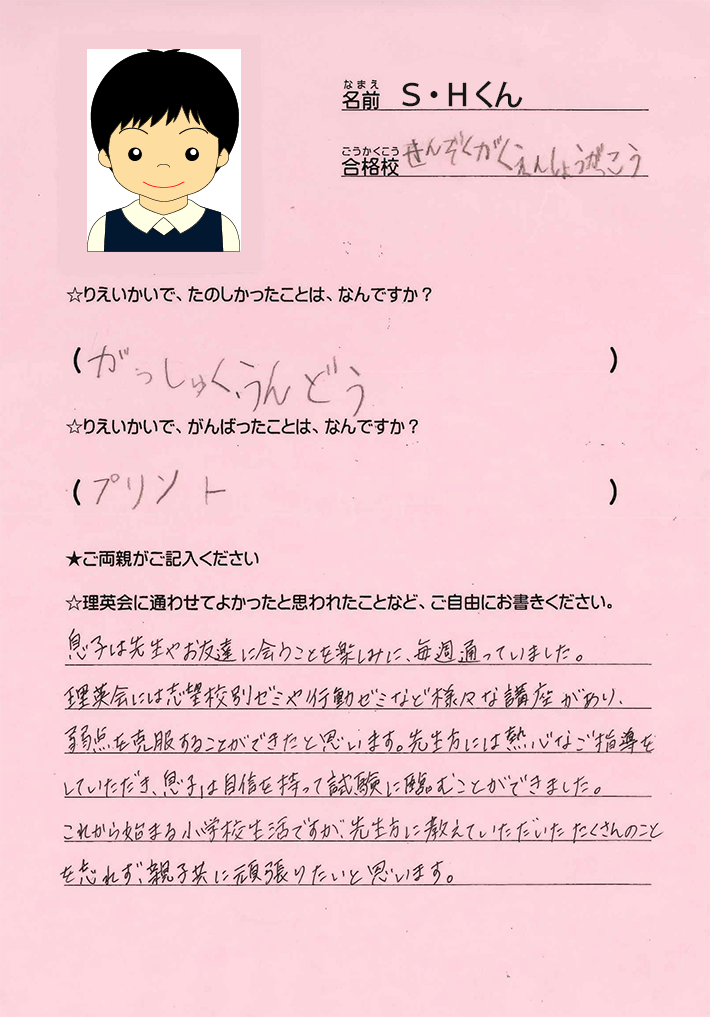 なまえ
名前 S・Hくん
ごうかくこう
合格校 きんぞくがくえんしょうがっこう
☆りえいかいで、たのしかったことは、なんですか？
( がっしゅく、うんどう )
☆りえいかいで、がんばったことは、なんですか？
( プリント )
★ご両親がご記入ください
☆理英会に通わせてよかったと思われたことなど、ご自由にお書きください。
息子は先生やお友達に会うことを楽しみに、毎週通っていました。
理英会には志望校別ゼミや行動ゼミなど様々な講座があり、
弱点を克服することができたと思います。先生方には熱心なご指導を
していただき、息子は自信を持って試験に臨むことができました。
これから始まる小学校生活ですが、先生方に教えていただいたたくさんのこと
を忘れず、親子共に頑張りたいと思います。